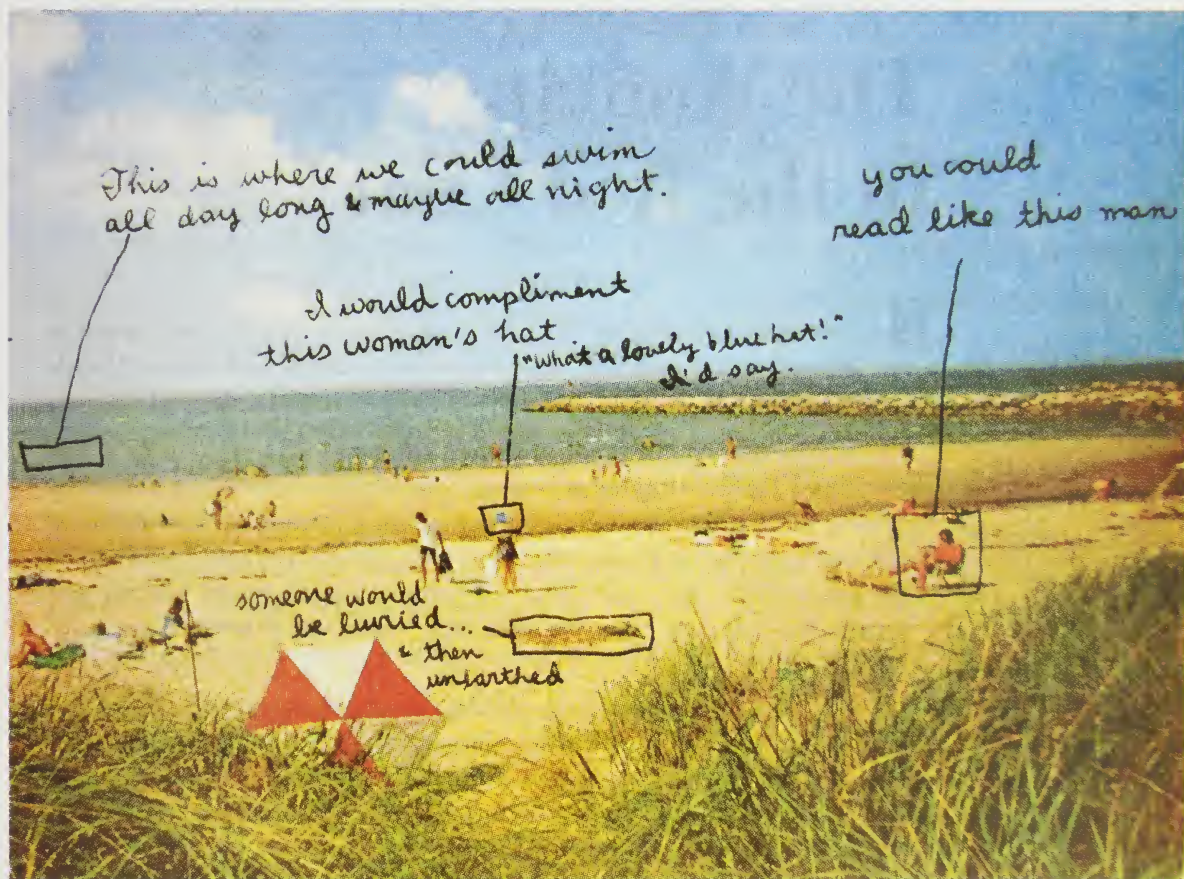 This is where we could swim
all day long & maybe all night.
you could
read like this man
I would compliment
this woman's hat
"What a lovely blue hat!"
I'd say.
someone would
be buried...
& then
unearthed